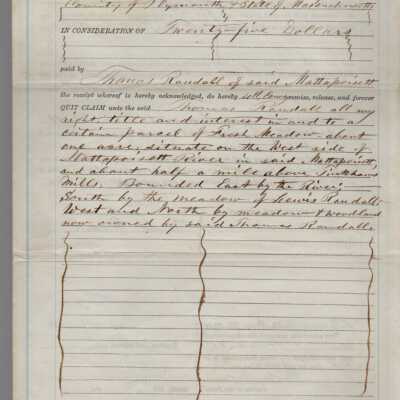 County of Plymouth & State of Massachusetts
IN CONSIDERATION OF Twenty-five Dollars
paid by
Thomas Randall of said Mattapoisett
the receipt whereof is hereby acknowledged, do hereby sell compromise, release, and forever
QUIT CLAIM unto the said Thomas Randall all my
right, title and interest in and to a
certain parcel of Fresh Meadow about
one acre, situate on the West side of
Mattapoisett River in said Mattapoisett,
and about half a mile above Tinkhams
Mills, Bounded East by the River;
South by the meadow of Lewis Randall
West and North by meadow & woodland
now owned by said Thomas Randall